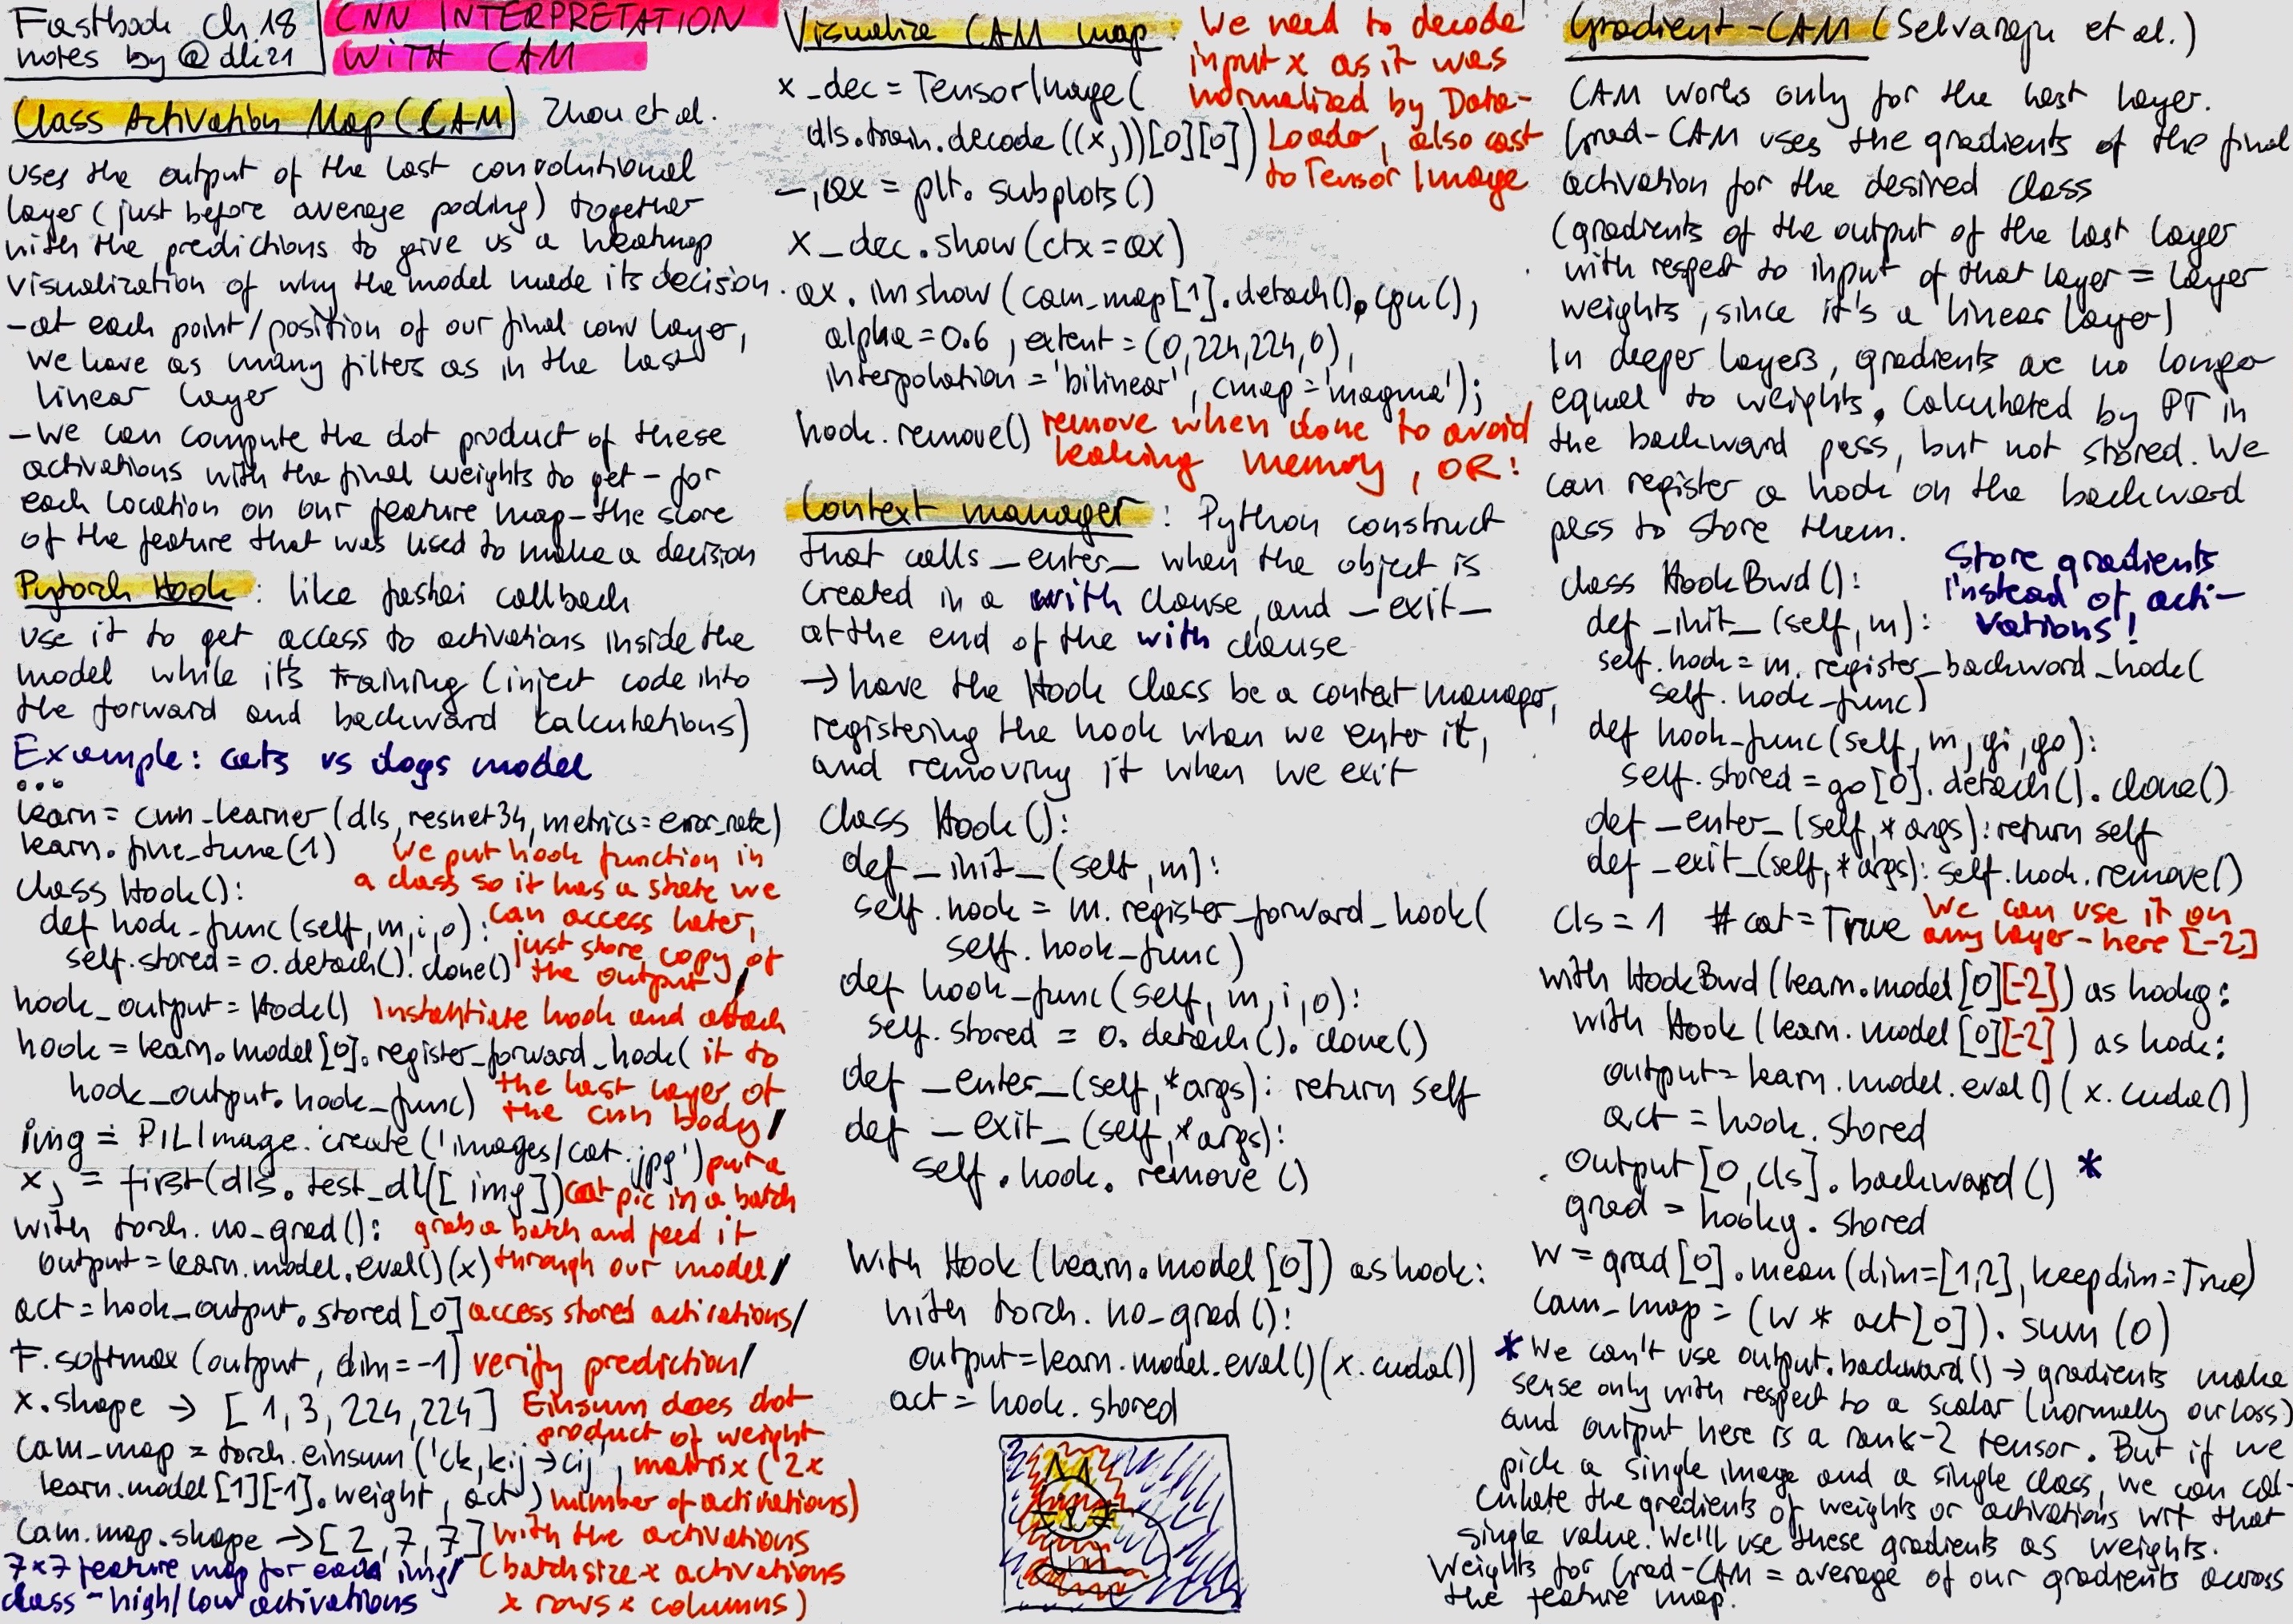 Fastbook Ch 18
notes by @dli21
CNN INTERPRETATION
WITH CAM
Class Activation Map (CAM) Zhou et al.
uses the output of the last convolutional
layer (just before average pooling) together
with the predictions to give us a heatmap
visualization of why the model made its decision.
- at each point/position of our final conv layer,
we have as many filters as in the last
linear layer
- We can compute the dot product of these
activations with the final weights to get - for
each location on our feature map - the score
of the feature that was used to make a decision
Pytorch Hook: like fastai callback
use it to get access to activations inside the
model while it's training (inject code into
the forward and backward calculations)
Example: cats vs dogs model
...
learn = cnn_learner (dls, resnet34, metrics=error_rate)
learn.fine_tune(1)
We put hook function in
a class so it has a state we
can access later,
just store copy of
the output /
class Hook():
def hook_func(self, m, i, o):
self.stored = o.detach().clone()
hook_output = Hook()
Instantiate hook and attach
it to
the last layer of
the cnn body /
hook = learn.model[0].register_forward_hook(
hook_output.hook_func)
img = PILImage.create('images/cat.jpg')
put a
cat pic in a batch
x, = first(dls.test_dl([img])
with torch.no_grad():
grab a batch and feed it
through our model /
output = learn.model.eval()(x)
act = hook_output.stored[0] access stored activations /
F.softmax (output, dim=-1) verify prediction /
x.shape → [1, 3, 224, 224]
Einsum does dot
product of weight
matrix (2x
number of activations)
with the activations
(batchsize x activations
x rows x columns)
cam_map = torch.einsum('ck,kij→cij',
learn.model[1][-1].weight, act)
cam.map.shape → [2, 7, 7]
7x7 feature map for each img/
class - high/low activations
Visualize CAM map:
We need to decode
input x as it was
normalized by Data-
Loader, also cast
to TensorImage
x_dec = TensorImage(
dls.train.decode((x,))[0][0])
_,ax = plt.subplots()
x_dec.show(ctx=ax)
ax.imshow(cam_map[1].detach().cpu(),
alpha=0.6, extent=(0,224,224,0),
interpolation='bilinear', cmap='magma');
hook.remove() remove when done to avoid
leaking memory, OR:
Context manager: Python construct
that calls _enter_ when the object is
created in a with clause, and _exit_
at the end of the with clause
→ have the Hook class be a context manager,
registering the hook when we enter it,
and removing it when we exit
class Hook():
def _init_(self, m):
self.hook = m.register_forward_hook(
self.hook_func)
def hook_func(self, m, i, o):
self.stored = o.detach().clone()
def _enter_(self, *args): return self
def _exit_(self, *args):
self.hook.remove()
with Hook(learn.model[0]) as hook:
with torch.no_grad():
output=learn.model.eval()(x.cuda())
act = hook.stored
Gradient-CAM (Selvaraju et al.)
CAM works only for the last layer.
Grad-CAM uses the gradients of the final
activation for the desired class
(gradients of the output of the last layer
with respect to input of that layer = layer
weights, since it's a linear layer)
In deeper layers, gradients are no longer
equal to weights. Calculated by PT in
the backward pass, but not stored. We
can register a hook on the backward
pass to store them.
Store gradients
instead of acti-
vations!
class HookBwd():
def _init_(self, m):
self.hook = m.register_backward_hook(
self.hook_func)
def hook_func(self, m, gi, go):
self.stored = go[0].detach().clone()
def _enter_(self, *args): return self
def _exit_(self, *args): self.hook.remove()
cls = 1 #cat=True We can use it on
any layer - here [-2]
with HookBwd(learn.model[0][-2]) as hookg:
with Hook(learn.model[0][-2]) as hook:
output=learn.model.eval()(x.cuda())
act = hook.stored
output[0,cls].backward() *
grad = hookg.stored
w = grad[0].mean(dim=[1,2], keepdim=True)
cam_map = (w * act[0]).sum(0)
* We can't use output.backward() → gradients make
sense only with respect to a scalar (normally our loss)
and output here is a rank-2 tensor. But if we
pick a single image and a single class, we can cal-
culate the gradients of weights or activations wrt that
single value. We'll use these gradients as weights.
Weights for Grad-CAM = average of our gradients across
the feature map.